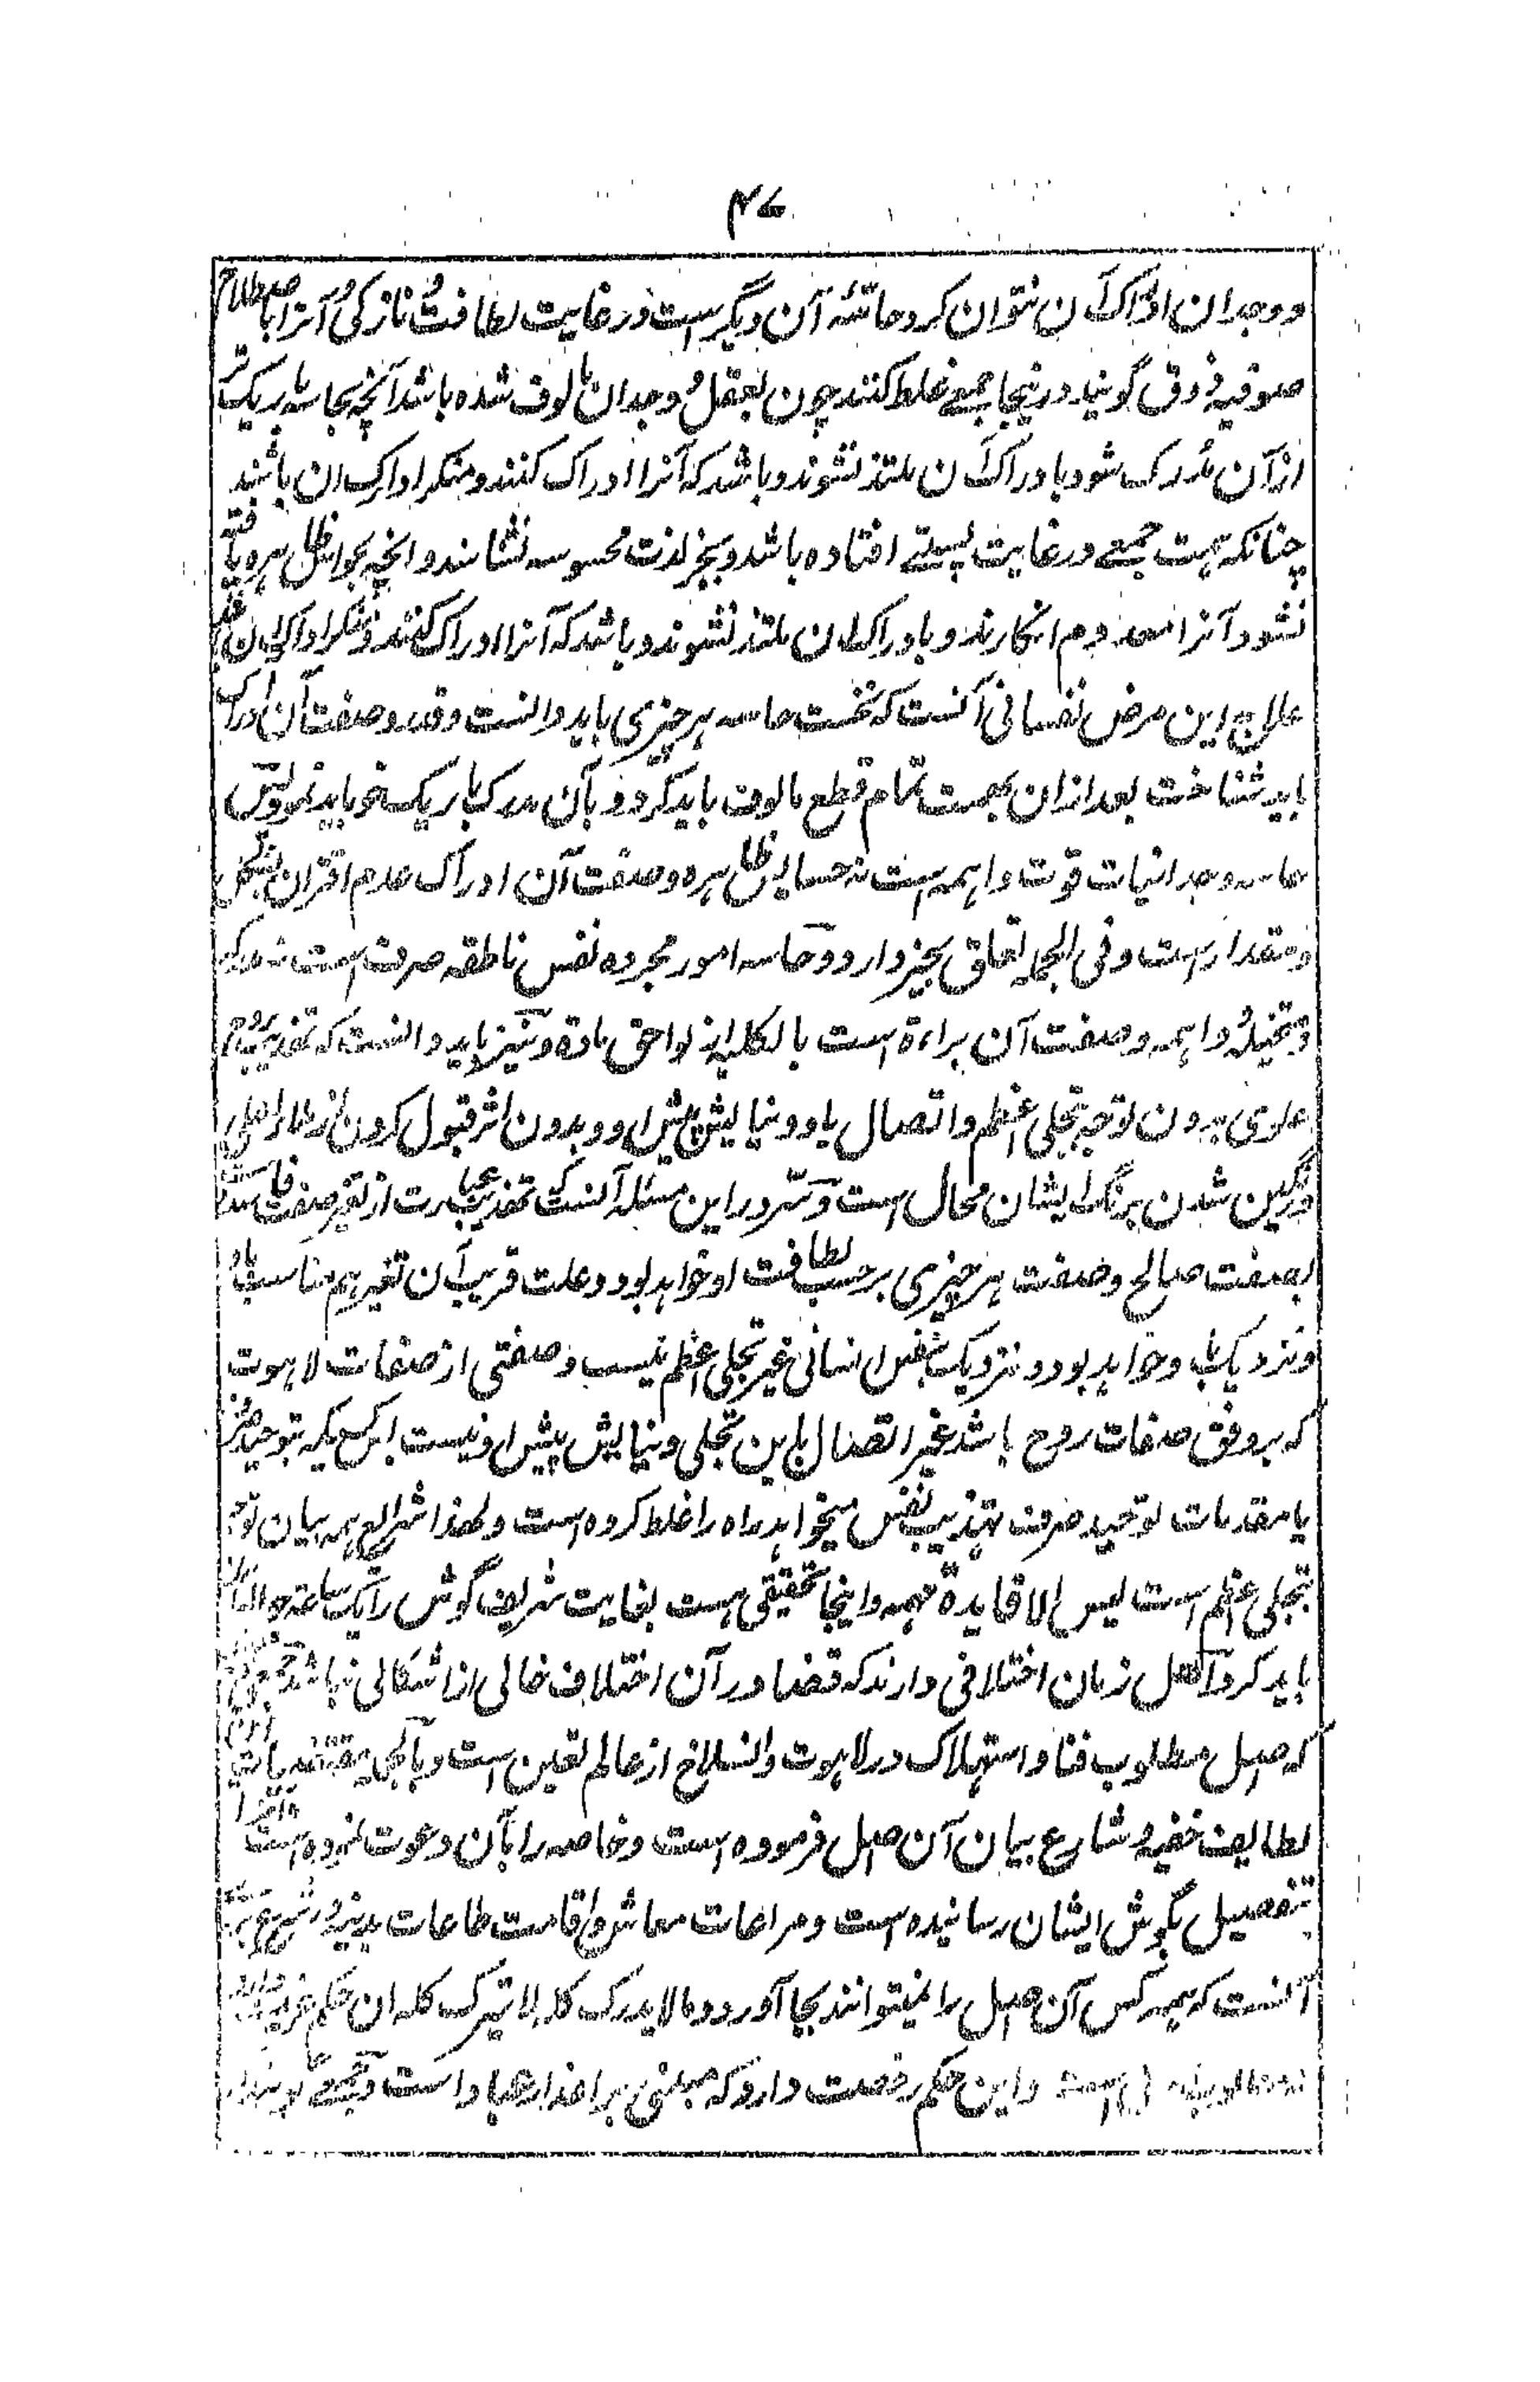 ۴۷
و وجدان ادراک آن نتوان کرد حاسّهٔ آن دیگر است در غایت لطافت و نازکی و آنرا باصطلاح
صوفیه ذوق گویند و درینجا جمعی غلط کنند چون بعقل و وجدان مالوف شده باشد آنچه بحاسّهٔ باریک‌تر
از آن مدرک شود بادراک آن ملتذ نشوند و باشد که آنرا ادراک کنند و منکر ادراک آن باشند
چنانکه همت جمعی در غایت پستی افتاده باشد و بجز لذت محسوسه نشناسند و آنچه بحواس ظاهره یافته
نشود آنرا معدوم انگارند و بادراک آن ملتذ نشوند و باشد که آنرا ادراک کنند و منکر ادراک آن
علاج این مرض نفسانی آنست که نخست حاسه هر چیزی باید دانست و قدر و صفت آن ادراک
باید شناخت بعد ازان بهمت تمام قطع مالوف باید کرد و بآن مدرک باریک خو باید نمود پس
حاسه وجدانیات قوت واهمه است نه حساس ظاهره و صفت آن ادراک عدم اقتران بشکل
و مقدار است و فی الجمله تعلق بحیز دارد و حاسه امور مجرده نفس ناطقه صرف است نه مدرکه
و متخیله و واهمه و صفت آن براءة است بالکلیه از لواحق ماده و نیز باید دانست که تهذیب روح
علوی بدون توجه بتجلی اعظم و اتصال باو و نیایش پیش او و بدون اثر قبول کردن از ملاء اعلی
و رنگین شدن برنگ ایشان محال است و سرّ در این مسئله آنست که تهذیب عبارت از تغیر صفت فاسد است
بصفت صالح و صفت هر چیزی بر حسب لطافت او خواهد بود و علت قریب آن تغیر هم مناسب باو
و نزدیک باو خواهد بود و نزدیک بنفس انسانی غیر تجلی اعظم نیست و صفتی از صفات لاهوت
که بر وفق صفات روح باشد غیر اتصال باین تجلی و نیایش پیش او نیست ابلهی که بتوحید صرف
یا مقدمات توحید صرف تهذیب نفس میخواهد راه را غلط کرده است و لهذا شرائع همه بیان توجه
بتجلی اعظم است لیس الا قایدة مهمه و اینجا تحقیقی هست بغایت شریف گوش را یک ساعت حواله
باید کرد اهل زمان اختلافی دارند که قضا در آن اختلاف خالی از اشکالی نباشد جمعی
که اصل مطلوب فنا و استهلاک در لاهوت و انسلاخ از عالم تعین است و بالجمله
لطایف خفیه و شارع بیان آن اصل فرموده است و خاصه را بآن دعوت نموده است
بتفصیل بگوش ایشان رسانیده است و مراعات معاش و اقامت طاعات بدنیه
آنست که همه کس آن اصل را نمیتوانند بجا آورد و مالا یدرک کله لا یترک کله آن حکم عزیمت
و این حکم رخصت دارد که مبنی بر اعذار عباد است و جمعی گویند